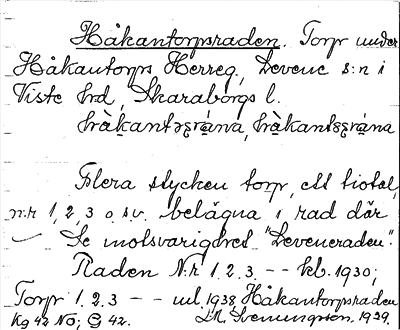 Håkantorpsraden. Torp under
Håkantorps Herreg, Levene s:n i
Viste hrd, Skaraborgs l.
Flera stycken torp, ett tiotal,
n:r 1, 2, 3 o.s.v. belägna i rad där
Se motsvarighet "Leveneraden".
Raden N:r 1. 2. 3. -- kl. 1930;
Torp 1. 2. 3 -- uttl 1938 Håkantorpsraden
Kg 42 NO; G 42. Svenungsson. 1939.